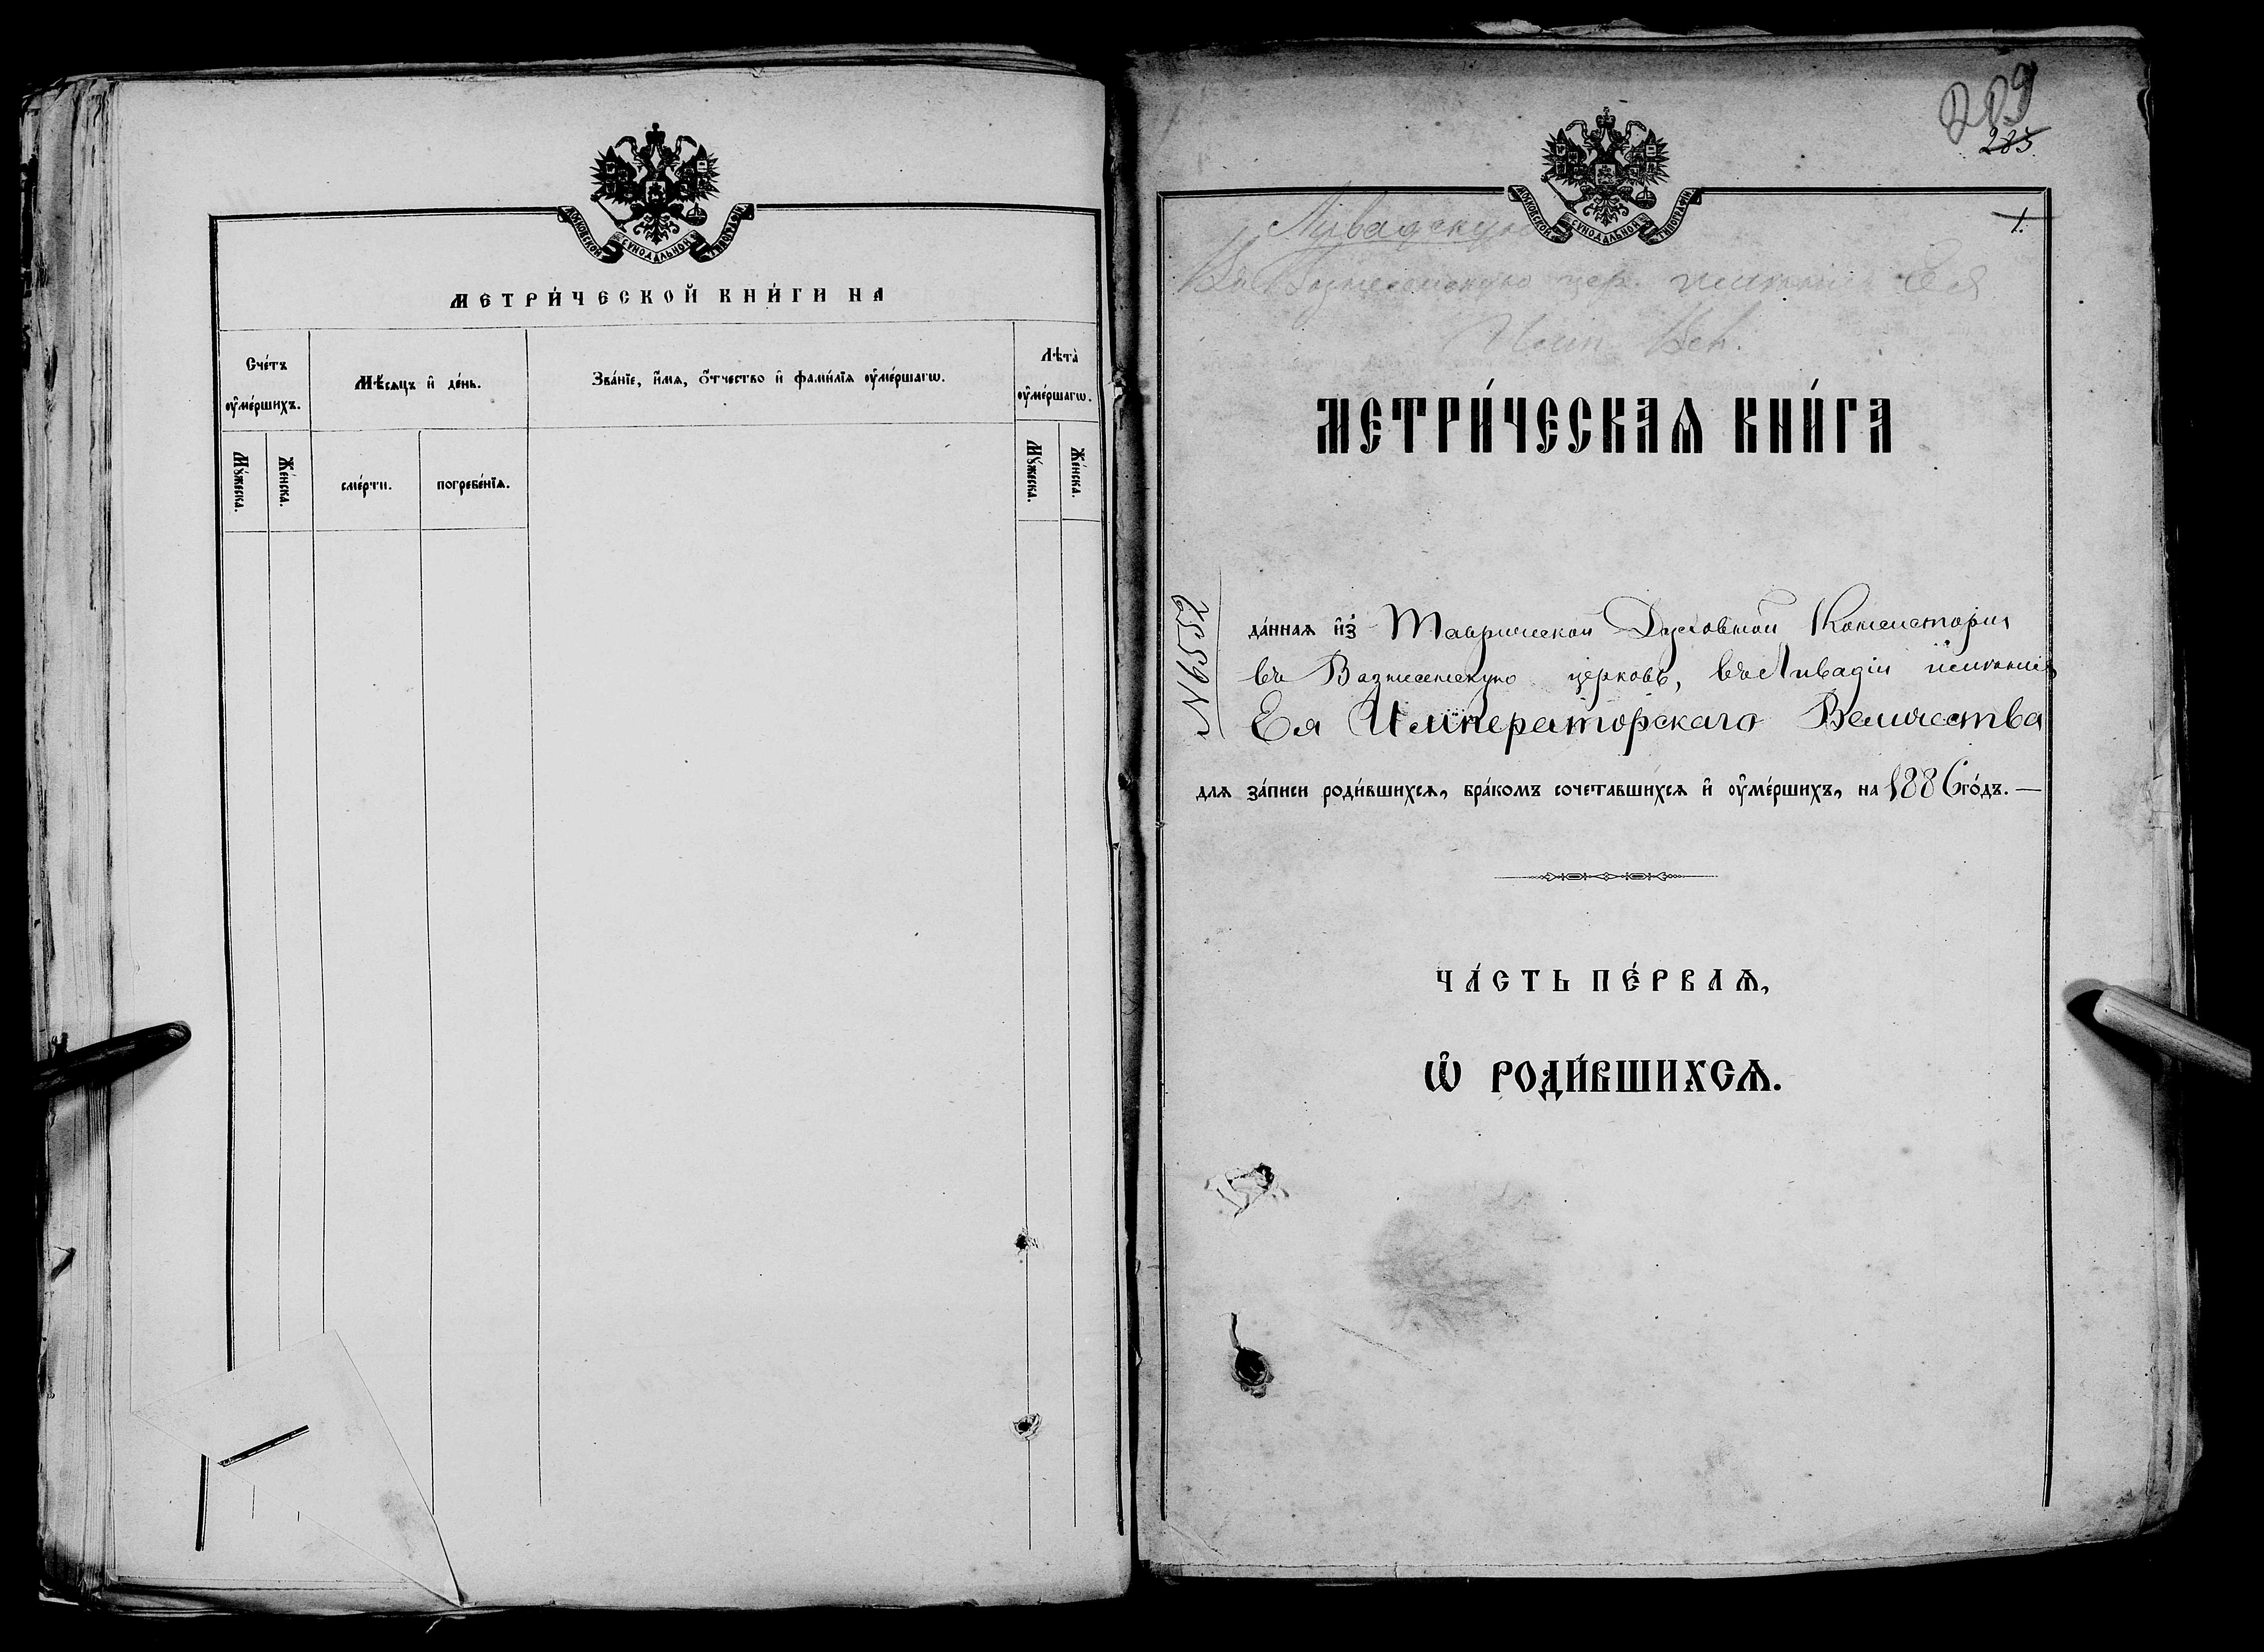 МОСКОВСКОЙ СѴНОДАЛЬНОЙ ТИПОГРАФІИ
МЕТРИ́ЧЕСКОЙ КНИ́ГИ НА
Сче́тъ ᲂу҆ме́ршихъ.
Мѣ́сяцъ и҆ де́нь.
Зва́нїе, и҆́мѧ, ѻ҆́тчество и҆ фами́лїѧ ᲂу҆ме́ршагѡ.
Лѣта̀ ᲂу҆ме́ршагѡ.
Мꙋ́жеска.
Же́нска.
сме́рти.
погребе́нїѧ.
Мꙋ́жеска.
Же́нска.
209
285
1.
МОСКОВСКОЙ СѴНОДАЛЬНОЙ ТИПОГРАФІИ
Ливадскую
Въ Вознесенскую цер. имѣнія Ея
Имп. Вел.
МЕТРИ́ЧЕСКАѦ КНИ́ГА
№ 6552
да́ннаѧ и҆з̾ Таврической Духовной Консисторіи
въ Вознесенскую церковь, въ Ливадіи имѣнія
Ея Императорскаго Величества
длѧ за́писи роди́вшихсѧ, бра́комъ сочета́вшихсѧ и҆ ᲂу҆ме́ршихъ, на 1886 го́дъ. —
ЧА́СТЬ ПЕ́РВАѦ,
Ѽ РОДИ́ВШИХСѦ.